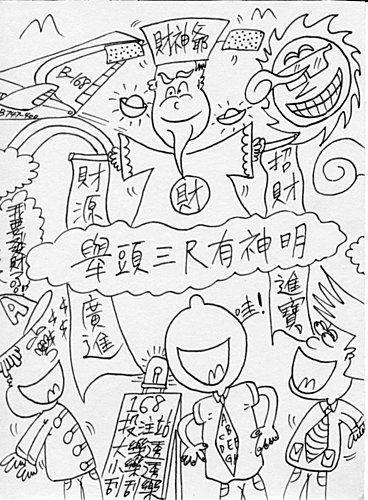 財神爺
B-168
B747-400
財
財源
招財
舉頭三尺有神明
廣進
進寶
哇!
A
168
投注站
大樂透
小樂透
刮刮樂
A
B
C D
E F
G H